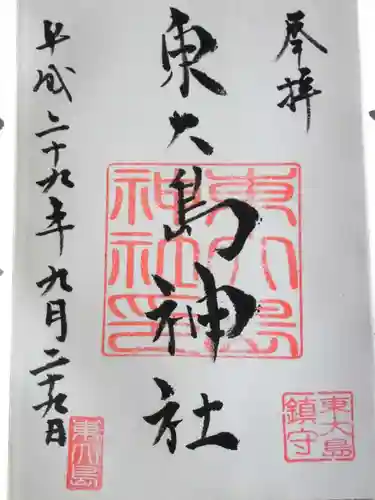 奉拝
東大島神社
東大島神社印
平成二十九年九月二十九日
東大島鎮守
東大島